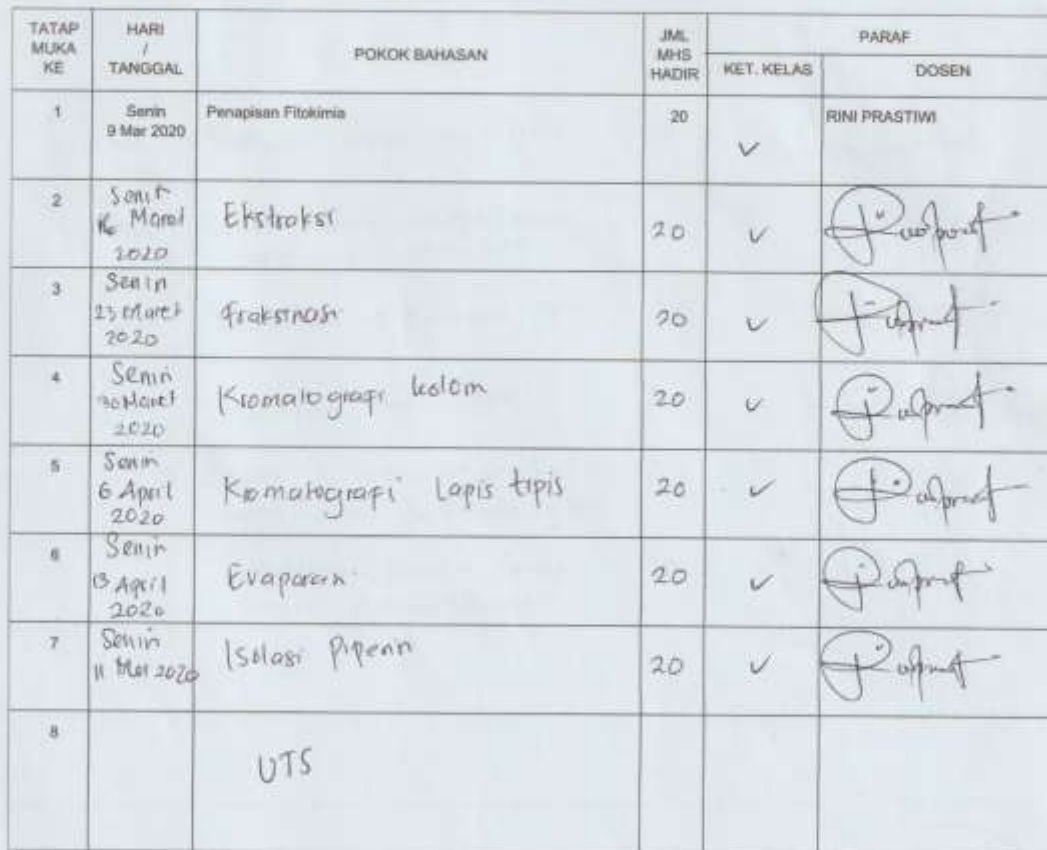 TATAP MUKA KE
HARI / TANGGAL
POKOK BAHASAN
JML MHS HADIR
PARAF
KET. KELAS
DOSEN
1
Senin 9 Mar 2020
Penapisan Fitokimia
20
RINI PRASTIWI
2
Senin 16 Maret 2020
Ekstraksi
20
3
Senin 23 Maret 2020
Fraksinasi
20
4
Senin 30 Maret 2020
Kromatografi kolom
20
5
Senin 6 April 2020
Kromatografi Lapis tipis
20
6
Senin 13 April 2020
20
7
Senin 11 Mei 2020
Isolasi Piperin
20
8
UTS